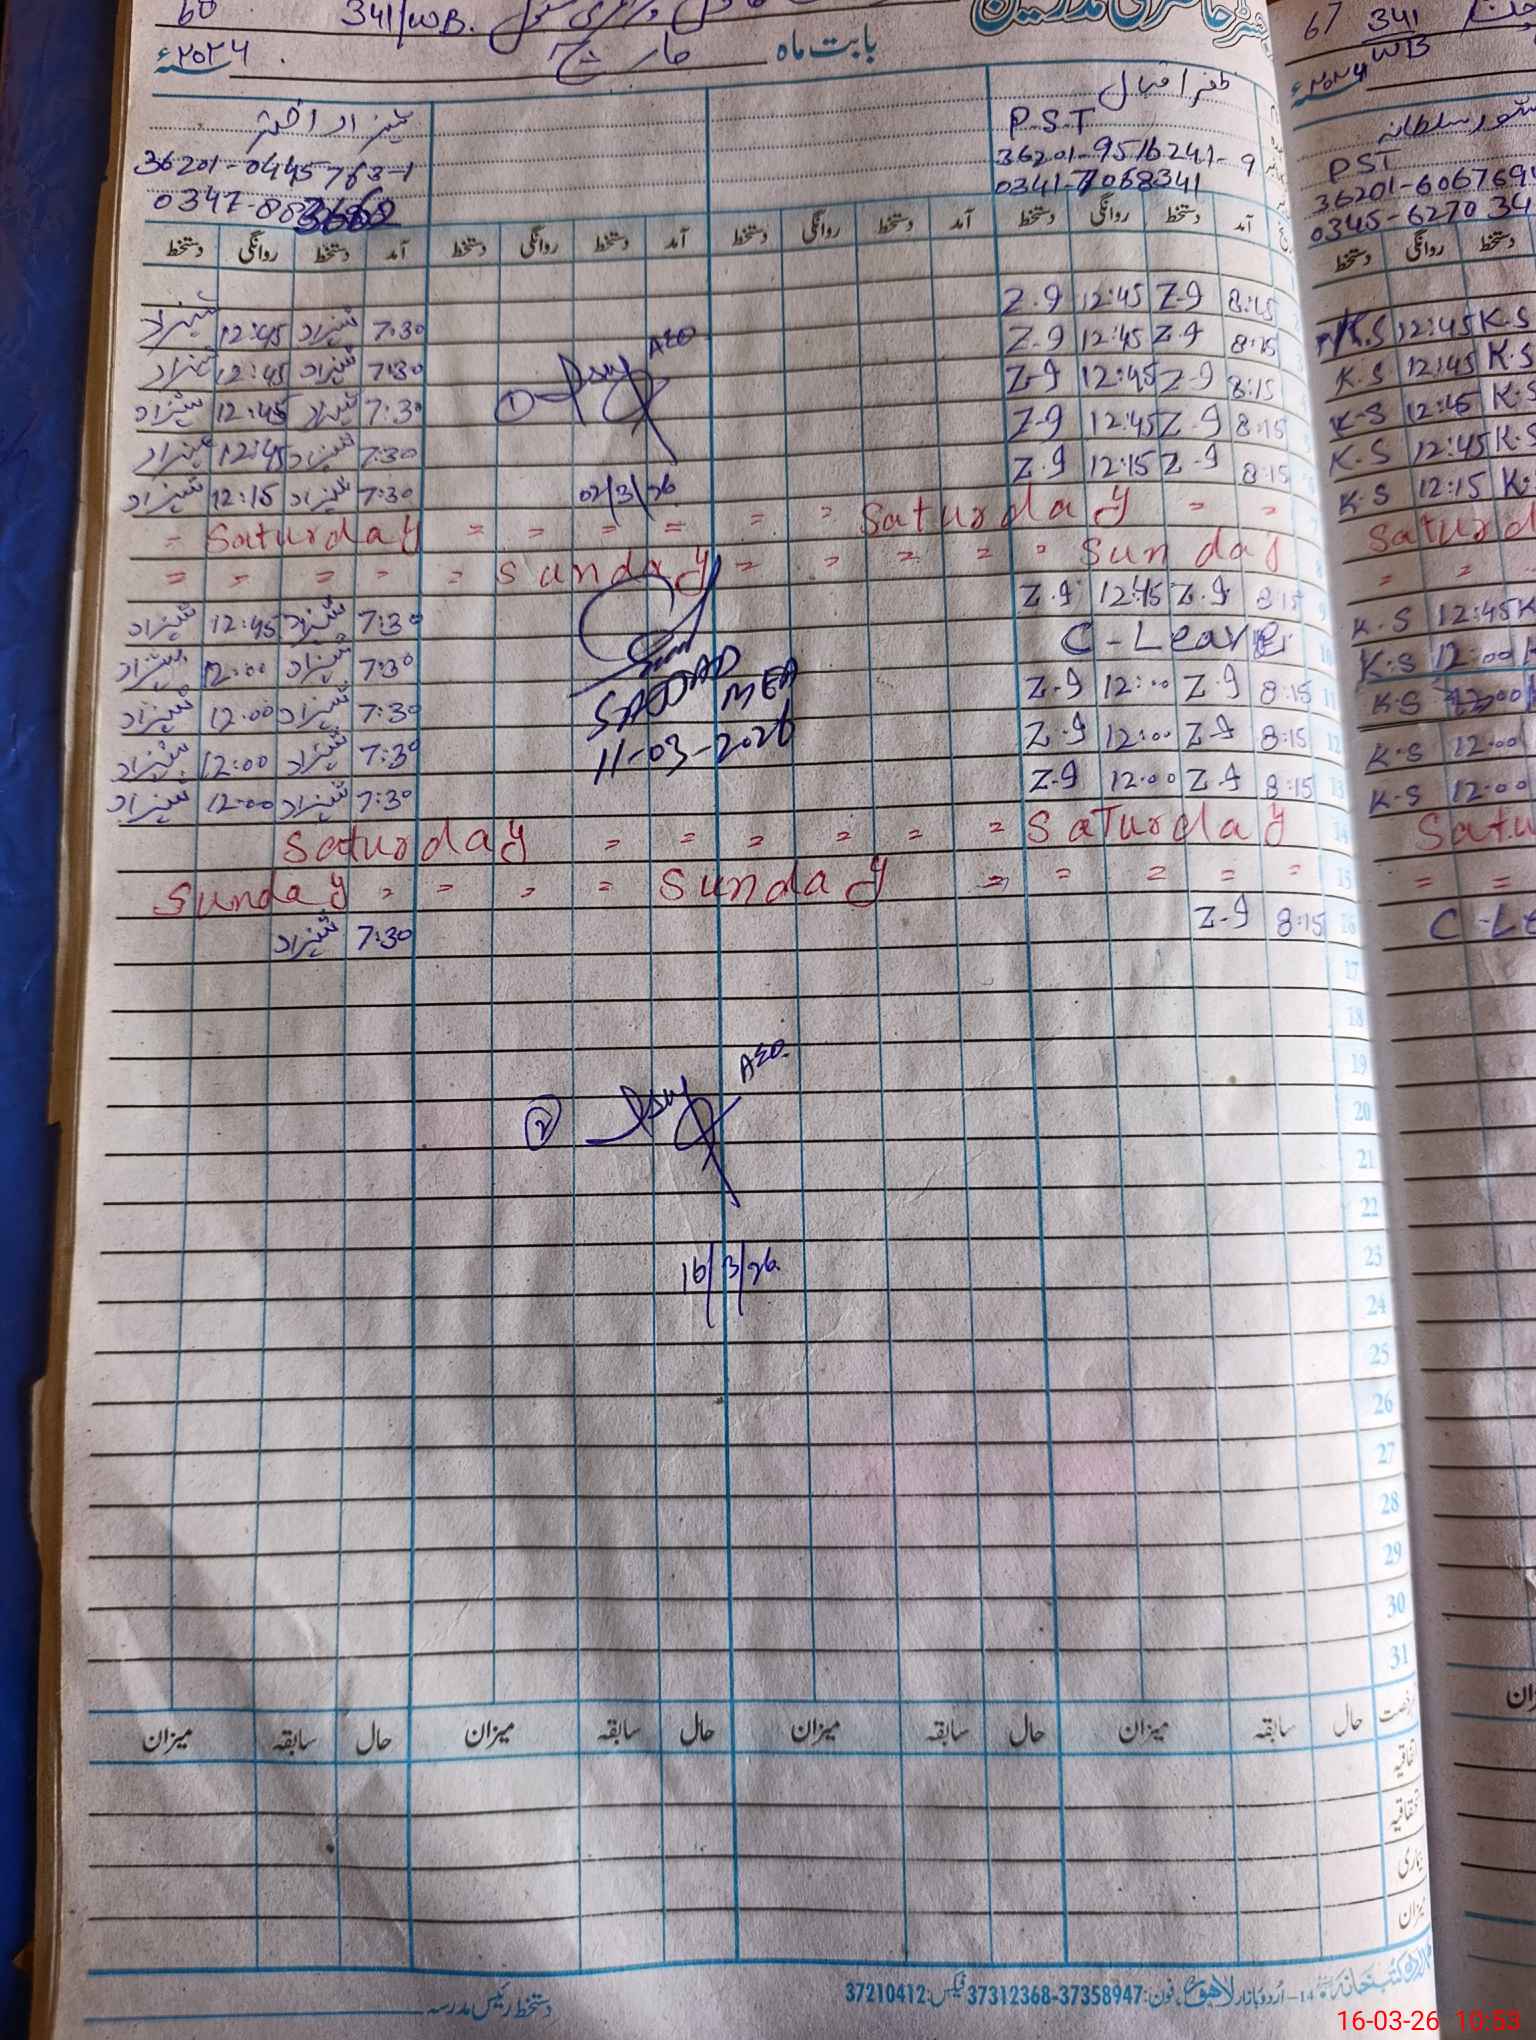 60 341/WB.
رجسٹر حاضری مدرسین
بابت ماہ مارچ ۲۰۲۶ء
ظفر اقبال
P.S.T
36201-9516241-9
0341-7068341
شہزاد اختر
36201-0445763-1
0347-8883668
آمد دستخط روانگی دستخط آمد دستخط روانگی دستخط آمد دستخط روانگی دستخط
8:15 Z.9 12:45 Z.9 7:30 شہزاد 12:45 شہزاد
8:15 Z.9 12:45 Z.9 7:30 شہزاد 12:45 شہزاد
8:15 Z-9 12:45 Z-9 7:30 شہزاد 12:45 شہزاد
8:15 Z-9 12:45 Z-9 7:30 شہزاد 12:45 شہزاد
8:15 Z-9 12:15 Z.9 7:30 شہزاد 12:15 شہزاد
① AEO
02/3/26
= Saturday = = = = = = Saturday = =
= = = = = Sunday = = = = = Sunday
8:15 Z.9 12:45 Z.9 7:30 شہزاد 12:45 شہزاد
C-Leave 7:30 شہزاد 12:00 شہزاد
11 8:15 Z.9 12:00 Z-9 7:30 شہزاد 12:00 شہزاد
12 8:15 Z-9 12:00 Z-9 7:30 شہزاد 12:00 شہزاد
13 8:15 Z-9 12:00 Z-9 7:30 شہزاد 12:00 شہزاد
SAJJAD
MEA
11-03-2026
Saturday = = = = = = Saturday 14
Sunday = = = = Sunday = = = = = 15
16 8:15 Z-9 7:30 شہزاد
17
18
19
20
21
22
23
24
25
26
27
28
29
30
31
② AEO
16/3/26
رخصت حال سابقہ میزان حال سابقہ میزان حال سابقہ میزان حال سابقہ میزان
اتفاقیہ
استحقاقیہ
بیماری
میزان
14-اُردو بازار لاہور، فون: 37358947-37312368 فیکس: 37210412
دستخط رئیس مدرسہ
67 341
WB
۲۰۲۶ء
سلطانہ
PST
36201-606769
0345-6270 34
دستخط روانگی دستخط
K.S 12:45 K.S
K.S 12:45 K.S
K-S 12:45 K.S
K.S 12:45 K.S
K.S 12:15 K.
Saturd
= =
K.S 12:45 K
K.S 12:00
K.S 12:00
K.S 12:00
K.S 12:00
Satu
= =
C-Le
16-03-26 10:53